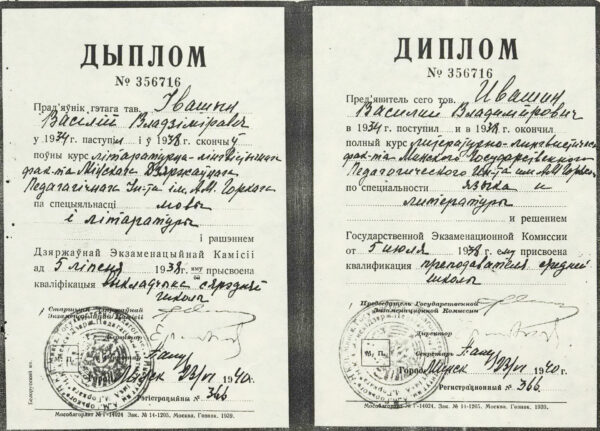 ДЫПЛОМ
№ 356716
Прад'яўнік гэтага тав. Івашын
Васілій Владзіміравіч
у 1934 паступіў і ў 1938 скончыў
поўны курс літаратурна-лінгвістычнага
фак-та Мінскага Дзяржаўнага
Педагагічнага Ін-та ім. А.М. Горкага
па спецыяльнасці мовы
і літаратуры
і рашэннем
Дзяржаўнай Экзаменацыйнай Камісіі
ад 5 ліпеня 1938 г. яму прысвоена
кваліфікацыя выкладчыка сярэдняй
школы
Старшыня Дзяржаўнай
Экзаменацыйнай Камісіі
Дырэктар
Мінск 23/VI 1940 г.
Рэгістрацыйны № 366.
Беларускай мв.
Мособлгортип № Г-14024 Зак. № 14-1205. Москва. Гознак. 1939.
ДИПЛОМ
№ 356716
Пред'явитель сего тов. Ивашин
Василий Владимирович
в 1934 поступил и в 1938 окончил
полный курс литературно-лингвистического
фак-та Минского Государственного
Педагогического Ин-та им. А.М. Горького
по специальности языка и
литературы
и решением
Государственной Экзаменационной Комиссии
от 5 июля 1938 г. ему присвоена
квалификация преподавателя средней
школы
Председатель Государственной
Экзаменационной Комиссии
Директор
Секретарь
Город Минск 23/VI 1940 г.
Регистрационный № 366.
Зак. № 1205. Москва. Гознак. 1939.